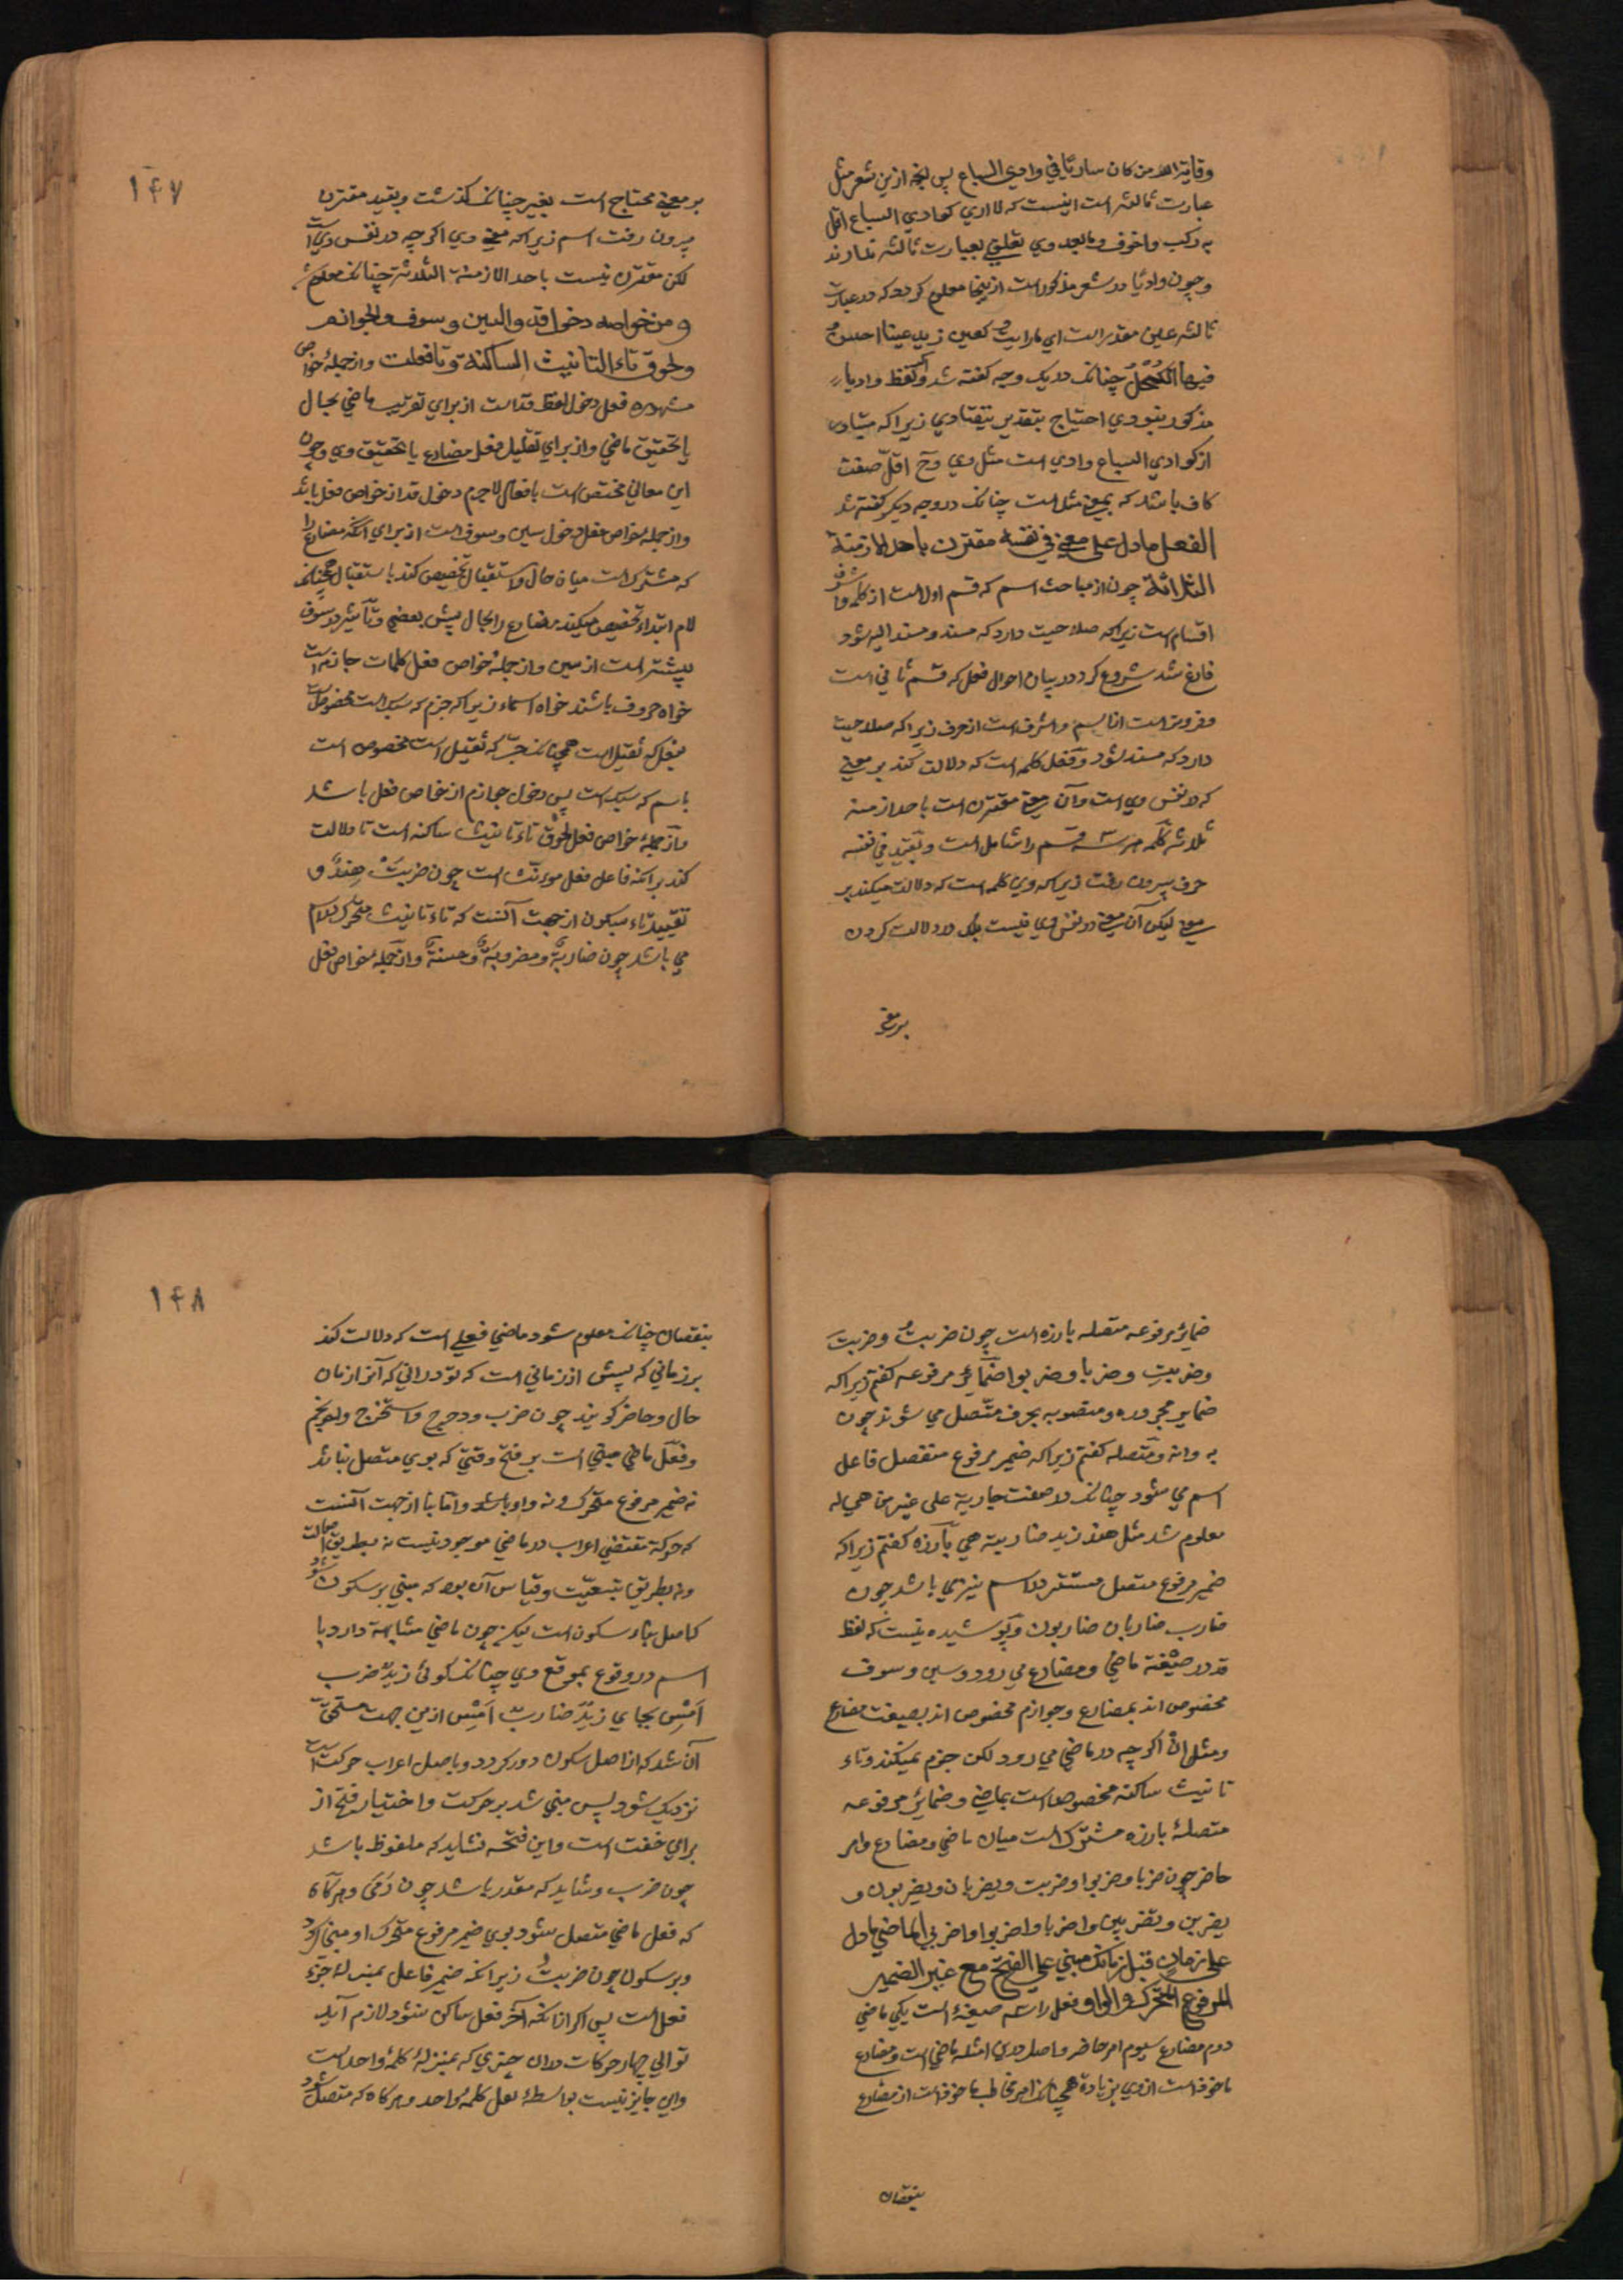 وقایة الله من کان ساریًا في وادي السباع پس آنچه ازین شعر مثل
عبارت ثالثه است اینست که لا اري کوادي السباع اقل
به رکب واخوف وما بعد وي تعلق بعبارت ثالثه ندارند
و چون وادیًا در شعر مذکور است ازینجا معلوم کردد که در عبارت
ثالثه عین مقدر است اي ما رایت کعین زید عینا احسن
فیها الکحل چنانکه در یک وجه کفته شد واکر لفظ وادیا
مذکور نبودي احتیاج بتقدیر نیفتادي زیراکه متبادر
از کوادي السباع وادي است مثل وي وح اقل صفت
کاف باشد که بمعني مثل است چنانکه در وجه دیکر کفته شد
الفعل ما دل علی معني في نفسه مقترن باحد الازمنة
الثلاثة چون از مباحث اسم که قسم اول است از کلمه و اشرف
اقسام است زیراکه صلاحیت دارد که مسند و مسند الیه شود
فارغ شد شروع کرد در بیان احوال فعل که قسم ثاني است
و فروتر است از اسم و اشرف است از حرف زیراکه صلاحیت
دارد که مسند شود و فعل کلمه است که دلالت کند بر معني
که در نفس وي است و آن معني مقترن است باحد ازمنه
ثلاثه کلمه هر سه قسم را شامل است و بقید في نفسه
حرف بیرون رفت زیراکه وي کلمه است که دلالت میکند بر
معني لیکن آن معني در نفس وي نیست بلکه در دلالت کردن
بر معني
۱۴۷
بر معني محتاج است بغیر چنانکه کذشت و بقید مقترن
بیرون رفت اسم زیراکه معني وي اکرچه در نفس وي است
لکن مقترن نیست باحد الازمنة الثلاثة چنانکه معلوم شد
و من خواصه دخول قد والسین و سوف والجوازم
ولحوق تاء التانیث الساکنة و تا فعلت و از جملهٔ خواص
مشهوره فعل دخول لفظ قد است از براي تقریب ماضي بحال
یا تحقیق ماضي و از براي تقلیل فعل مضارع یا تحقیق وي و چون
این معاني مختص است بافعال لاجرم دخول قد از خواص فعل باشد
و از جمله خواص فعل دخول سین و سوف است از براي آنکه مضارع را
که مشترک است میان حال و استقبال تخصیص کند باستقبال همچنانکه
لام ابتداء تخصیص میکند مضارع را بحال پیش بعضي و تاثیر در سوف
بیشتر است از سین و از جملهٔ خواص فعل کلمات جازمه است
خواه حروف باشند خواه اسماء زیراکه جزم که سبک است مخصوص است
بفعل که ثقیل است همچنانکه جر که ثقیل است مخصوص است
باسم که سبک است پس دخول جوازم از خواص فعل باشد
و از جملهٔ خواص فعل لحوق تاء تانیث ساکنه است تا دلالت
کند بر آنکه فاعل فعل مونث است چون ضربَتْ هندٌ و
تقیید تاء بسکون از جهت آنست که تاء تانیث متحرک در اسم
مي باشد چون ضاربةٌ و مضروبةٌ و حسنةٌ و از جمله خواص فعل
ضمائر مرفوعه متصله بارزه است چون ضربتُ و ضربتَ
و ضربتِ و ضربا و ضربوا ضمائر مرفوعه کفتم زیراکه
ضمایر مجروره و منصوبه بحرف متصل مي شوند چون
به وانه و متصله کفتم زیراکه ضمیر مرفوع منفصل فاعل
اسم مي شود چنانکه در صفت جاریة علی غیر من هي له
معلوم شد مثل هند زید ضاربته هي بارزه کفتم زیراکه
ضمیر مرفوع متصل مستتر در اسم نیزمي باشد چون
ضارب ضاربان ضاربون و پوشیده نیست که لفظ
قد در صیغهٔ ماضي و مضارع مي رود و سین و سوف
مخصوص اند بمضارع و جوازم مخصوص اند بصیغت مضارع
و مثل اِنْ اکرچه در ماضي مي رود لکن جزم نمیکند و تاء
تانیث ساکنه مخصوص است بماضي و ضمائر مرفوعه
متصلهٔ بارزه مشترک است میان ماضي و مضارع و امر
حاضر چون ضربا و ضربوا و ضربت و یضربان و یضربون و
یضربن و تضربین و اضربا و اضربوا و اضربي الماضي ما دل
علی زمان قبل زمانک مبني علی الفتح مع غیر الضمیر
المرفوع المتحرک والواو فعل را سه صیغهٔ است یکي ماضي
دوم مضارع سیوم امر حاضر و اصل درین امثله ماضي است و مضارع
ماخوذ است از وي بزیادة همچنانکه امر مخاطب ماخوذ است از مضارع
بنقصان
۱۴۸
بنقصان چنانکه معلوم شود ماضي فعلي است که دلالت کند
بر زماني که پیش از زماني است که تو دراني که آنرا زمان
حال و حاضر کویند چون ضرب و دحرج و استخرج و احرنجم
و فعل ماضي مبني است بر فتح وقتي که بوي متصل نباشد
نه ضمیر مرفوع متحرک و نه واو باشد و اما بنا از جهت آنست
که حرکة مقتضي اعراب در ماضي موجود نیست نه بطریق اصالت
و نه بطریق تبعیّت و قیاس آن بود که مبني بر سکون شود
که اصل بناء سکون است لیکن چون ماضي مشابهة دارد با
اسم در وقوع بموقع وي چنانکه کوئي زیدٌ ضرب
اَمْسِ بجاي زیدٌ ضاربٌ اَمْسِ ازین جهت مستحق
آن شد که از اصل سکون دور کردد و باصل اعراب حرکت است
نزدیک شود پس مبني شد بر حرکت و اختیار فتح از
براي خفت است و این فتحه شاید که ملفوظ باشد
چون ضرب و شاید که مقدر باشد چون رمَی و هرکاه
که فعل ماضي متصل شود بوي ضمیر مرفوع متحرک او مبني کردد
و بر سکون چون ضربتُ زیرانکه ضمیر فاعل بمنزلهٔ جزء
فعل است پس اکر ازانکه آخر فعل ساکن نشود لازم آید
توالي چهار حرکات دران چیزي که بمنزلهٔ کلمهٔ واحد است
و این جایز نیست بواسطهٔ ثقل کلمهٔ واحد و هرکاه که متصل شود